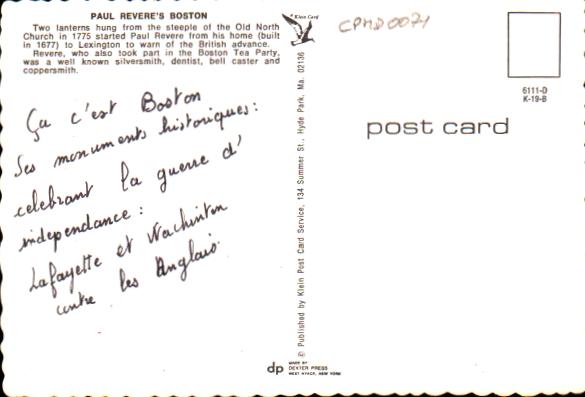 PAUL REVERE'S BOSTON
Two lanterns hung from the steeple of the Old North
Church in 1775 started Paul Revere from his home (built
in 1677) to Lexington to warn of the British advance.
Revere, who also took part in the Boston Tea Party,
was a well known silversmith, dentist, bell caster and
coppersmith.
Ça c'est Boston
Ses monuments historiques:
celebrant la guerre d'
independance:
Lafayette et Wachinton
contre les Anglais.
dp MADE BY
DEXTER PRESS
WEST NYACK, NEW YORK
Klein Card
© Published by Klein Post Card Service, 134 Summer St., Hyde Park, Ma. 02136
CPMD0071
6111-D
K-19-B
post card